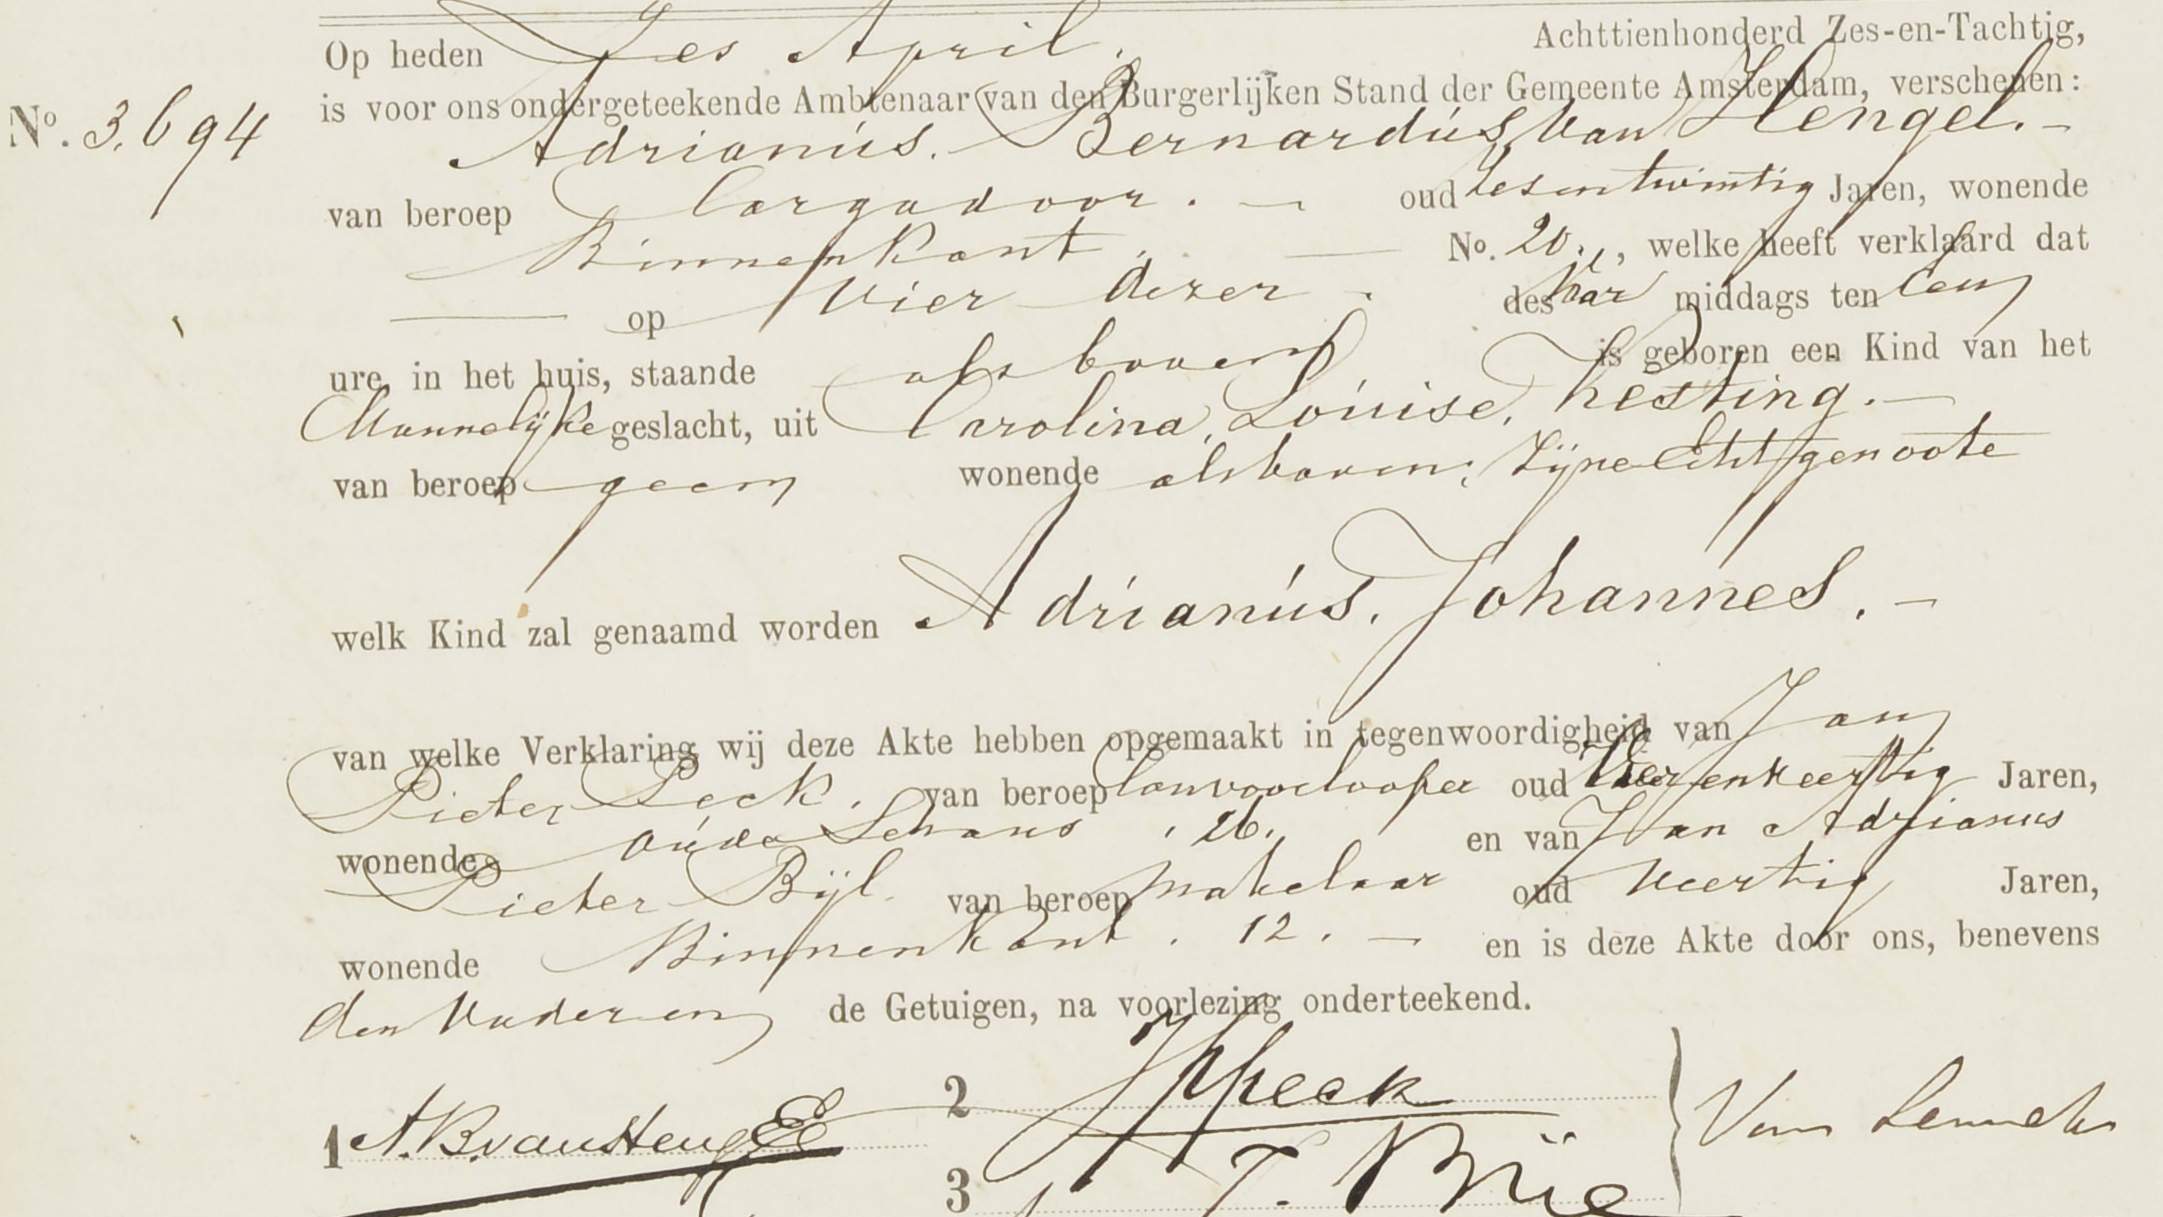 Op heden Zes April. Achttienhonderd Zes-en-Tachtig,
No. 3.694 is voor ons ondergeteekende Ambtenaar van den Burgerlijken Stand der Gemeente Amsterdam, verschenen:
Adrianús. Bernardús, van Hengel. —
van beroep Cargadoor. — oud Zesentwintig Jaren, wonende
Binnenkant. — No. 20., welke heeft verklaard dat
— op Vier dezer. des Voor middags ten een
ure, in het huis, staande als boven is geboren een Kind van het
Mannelijke geslacht, uit Carolina, Loúise, Kesting. —
van beroep geen wonende als boven; Zijne Echtgenoote
welk Kind zal genaamd worden Adrianús. Johannes. —
van welke Verklaring wij deze Akte hebben opgemaakt in tegenwoordigheid van Jan
Pieter Peck. van beroep Convooilooper oud Vierenveertig Jaren,
wonende Oúde Schans. 26. en van Jan Adrianus
Pieter Bijl. van beroep makelaar oud Veertig Jaren,
wonende Binnenkant. 12. — en is deze Akte door ons, benevens
den Vader en de Getuigen, na voorlezing onderteekend.
1 A.B. van Hengel 2 JPPeck Van Lennep
3